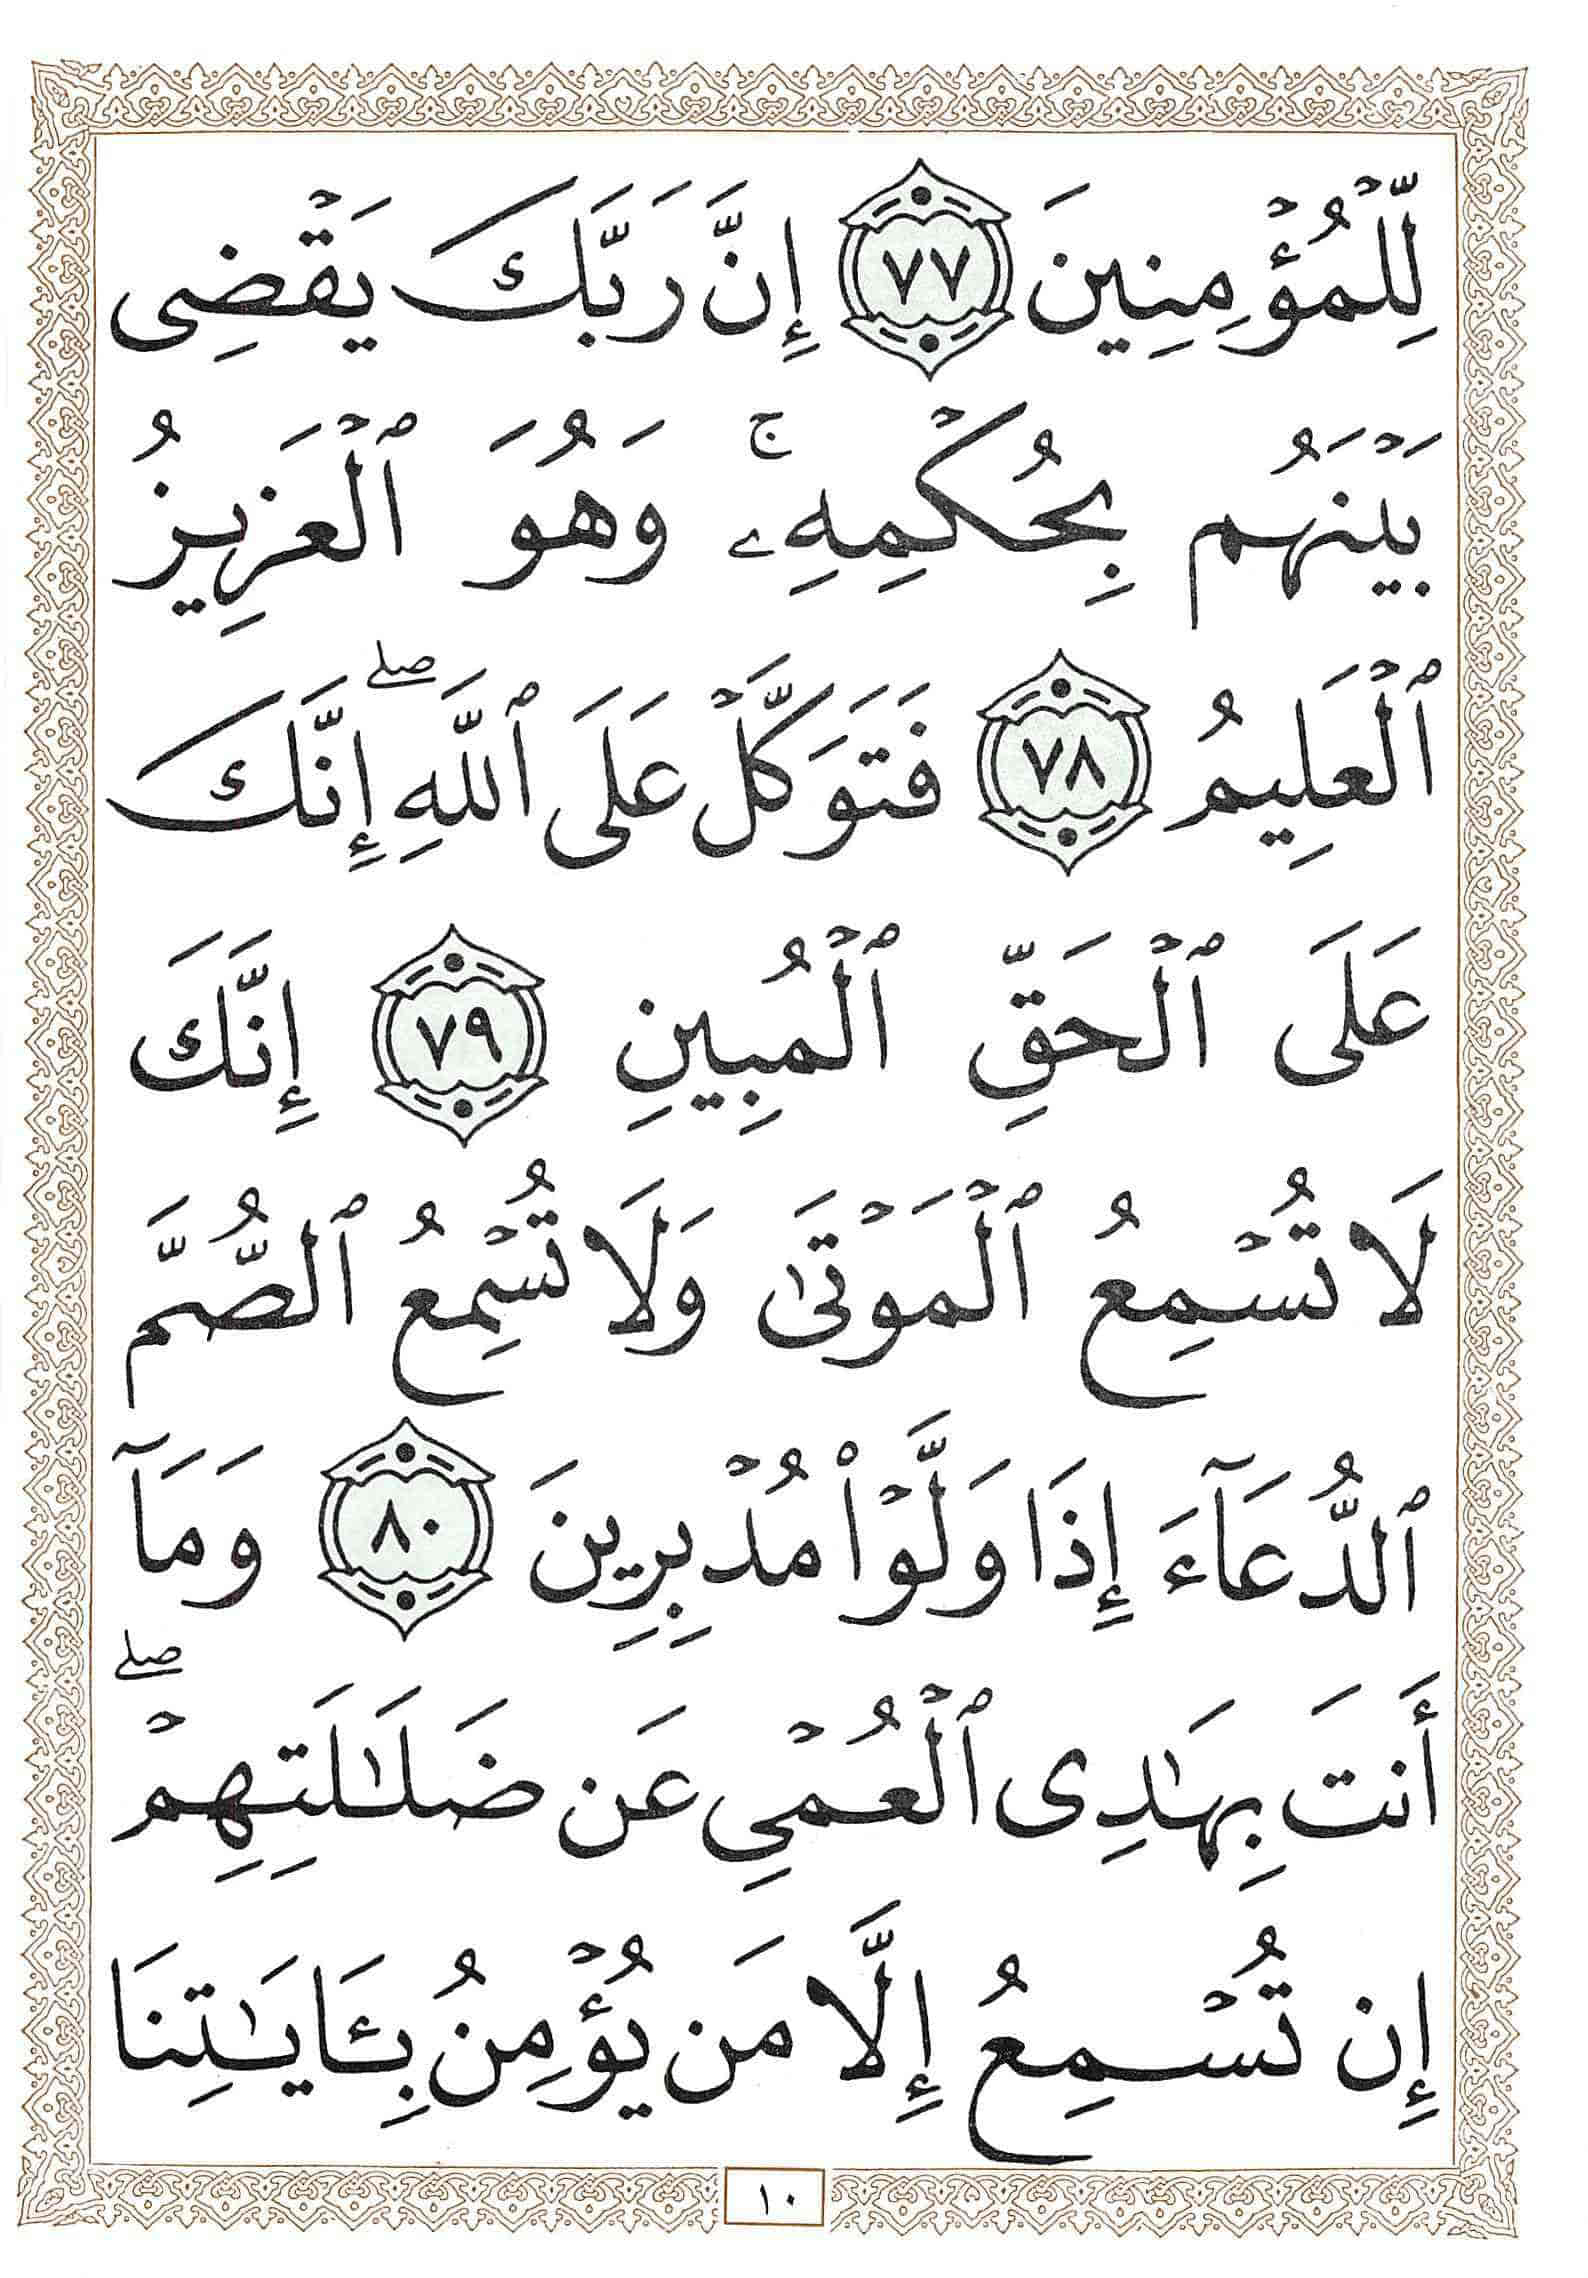 لِّلْمُؤْمِنِينَ ٧٧ إِنَّ رَبَّكَ يَقْضِى
بَيْنَهُم بِحُكْمِهِۦ ۚ وَهُوَ ٱلْعَزِيزُ
ٱلْعَلِيمُ ٧٨ فَتَوَكَّلْ عَلَى ٱللَّهِ ۖ إِنَّكَ
عَلَى ٱلْحَقِّ ٱلْمُبِينِ ٧٩ إِنَّكَ
لَا تُسْمِعُ ٱلْمَوْتَىٰ وَلَا تُسْمِعُ ٱلصُّمَّ
ٱلدُّعَآءَ إِذَا وَلَّوْا۟ مُدْبِرِينَ ٨٠ وَمَآ
أَنتَ بِهَـٰدِى ٱلْعُمْىِ عَن ضَلَـٰلَتِهِمْ ۖ
إِن تُسْمِعُ إِلَّا مَن يُؤْمِنُ بِـَٔايَـٰتِنَا
١٠